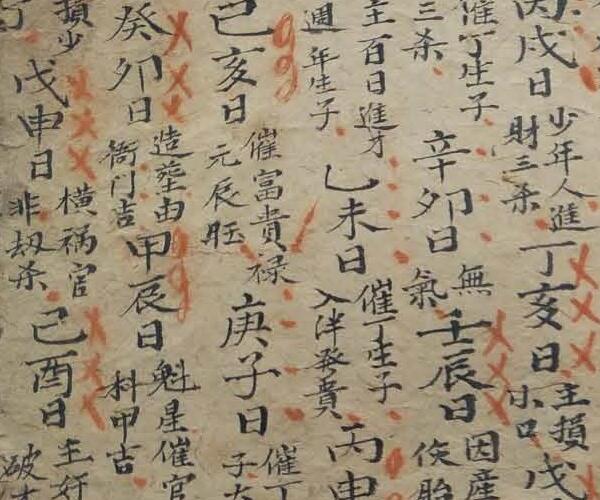 丙戌日
少年人進
財三杀
丁亥日
主損
小口
戊
催丁生子
三杀
辛卯日
無
氣
壬辰日
因産
胎
主百日進才
週年生子
乙未日
催丁生子
入泮發貴
丙申
己亥日
催富貴禄
元辰旺
庚子日
催丁
子
癸卯日
造塟由
衙门吉
甲辰日
魁星催官
科甲吉
損少
戊申日
横祸官
非劫杀
己酉日
主奸
破